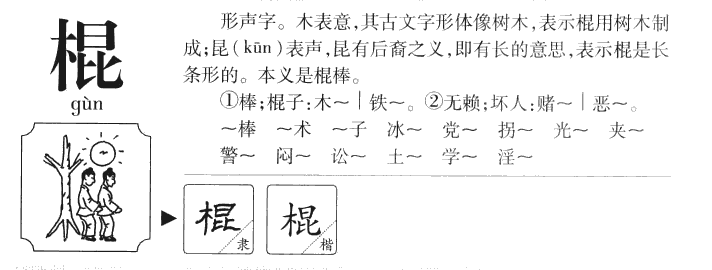 棍
gùn
形声字。木表意,其古文字形体像树木,表示棍用树木制
成;昆(kūn)表声,昆有后裔之义,即有长的意思,表示棍是长
条形的。本义是棍棒。
①棒;棍子:木～|铁～。②无赖;坏人:赌～|恶～。
～棒 ～术 ～子 冰～ 党～ 拐～ 光～ 夹～
警～ 闷～ 讼～ 土～ 学～ 淫～
棍 隶
棍 楷